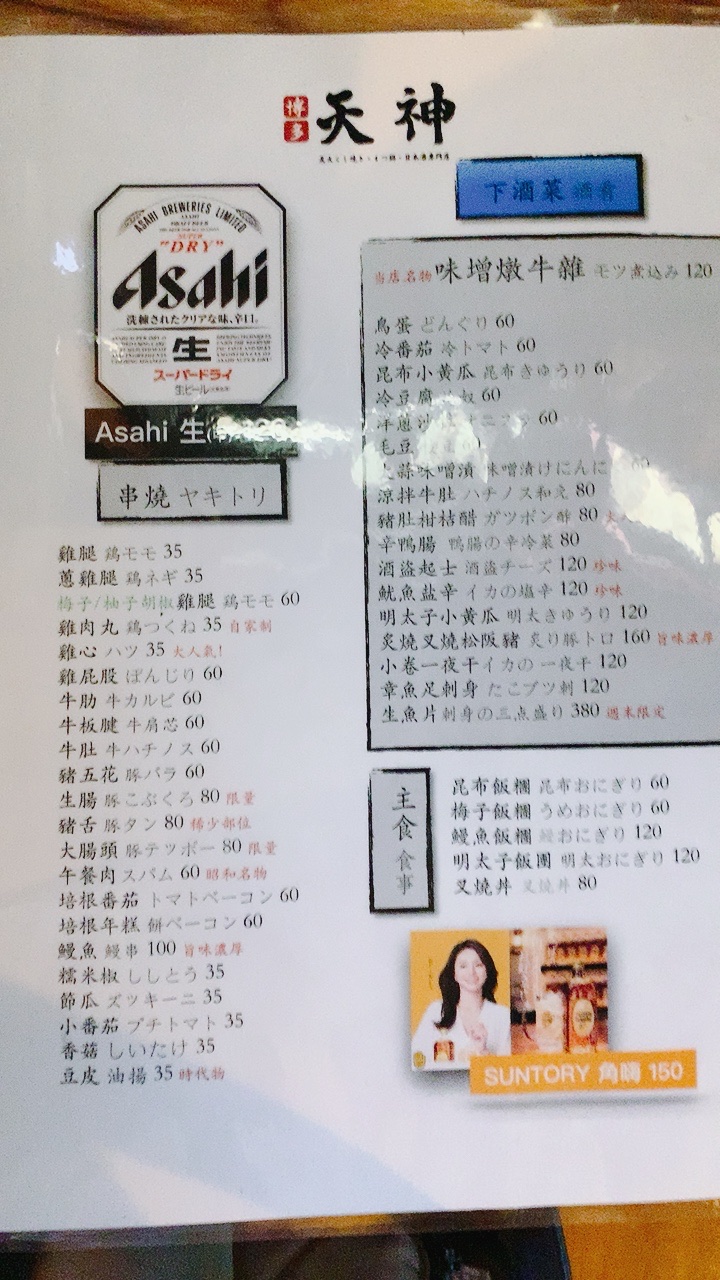 博多 天神
ASAHI BREWERIES LIMITED
ASAHI
DRAFT BEER
SUPER
"DRY"
Asahi
洗練されたクリアな味、辛口。
生
スーパードライ
生ビール
Asahi 生
串燒 ヤキトリ
雞腿 鶏モモ 35
蔥雞腿 鶏ネギ 35
梅子/柚子胡椒雞腿 鶏モモ 60
雞肉丸 鶏つくね 35 自家制
雞心 ハツ 35 大人氣!
雞屁股 ぼんじり 60
牛肋 牛カルビ 60
牛板腱 牛肩芯 60
牛肚 牛ハチノス 60
豬五花 豚バラ 60
生腸 豚こぶくろ 80 限量
豬舌 豚タン 80 稀少部位
大腸頭 豚テッポー 80 限量
午餐肉 スパム 60 昭和名物
培根番茄 トマトベーコン 60
培根年糕 餅ベーコン 60
鰻魚 鰻串 100 旨味濃厚
糯米椒 ししとう 35
節瓜 ズッキーニ 35
小番茄 プチトマト 35
香菇 しいたけ 35
豆皮 油揚 35 時代物
下酒菜 酒肴
当店名物 味增燉牛雜 モツ煮込み 120
鳥蛋 どんぐり 60
冷番茄 冷トマト 60
昆布小黃瓜 昆布きゅうり 60
冷豆腐 60
洋蔥沙 60
毛豆
蒜味噌漬 味噌漬けにんに
涼拌牛肚 ハチノス和え 80
豬肚柑桔醋 ガツポン酢 80
辛鴨腸 鴨腸の辛冷菜 80
酒盜起士 酒盗チーズ 120 珍味
魷魚鹽辛 イカの塩辛 120 珍味
明太子小黃瓜 明太きゅうり 120
炙燒叉燒松阪豬 炙り豚トロ 160 旨味濃厚
小卷一夜干 イカの一夜干 120
章魚足刺身 たこブツ刺 120
生魚片 刺身の三点盛り 380 週末限定
主食 食事
昆布飯糰 昆布おにぎり 60
梅子飯糰 うめおにぎり 60
鰻魚飯糰 鰻おにぎり 120
明太子飯團 明太おにぎり 120
叉燒丼 叉焼丼 80
SUNTORY 角嗨 150